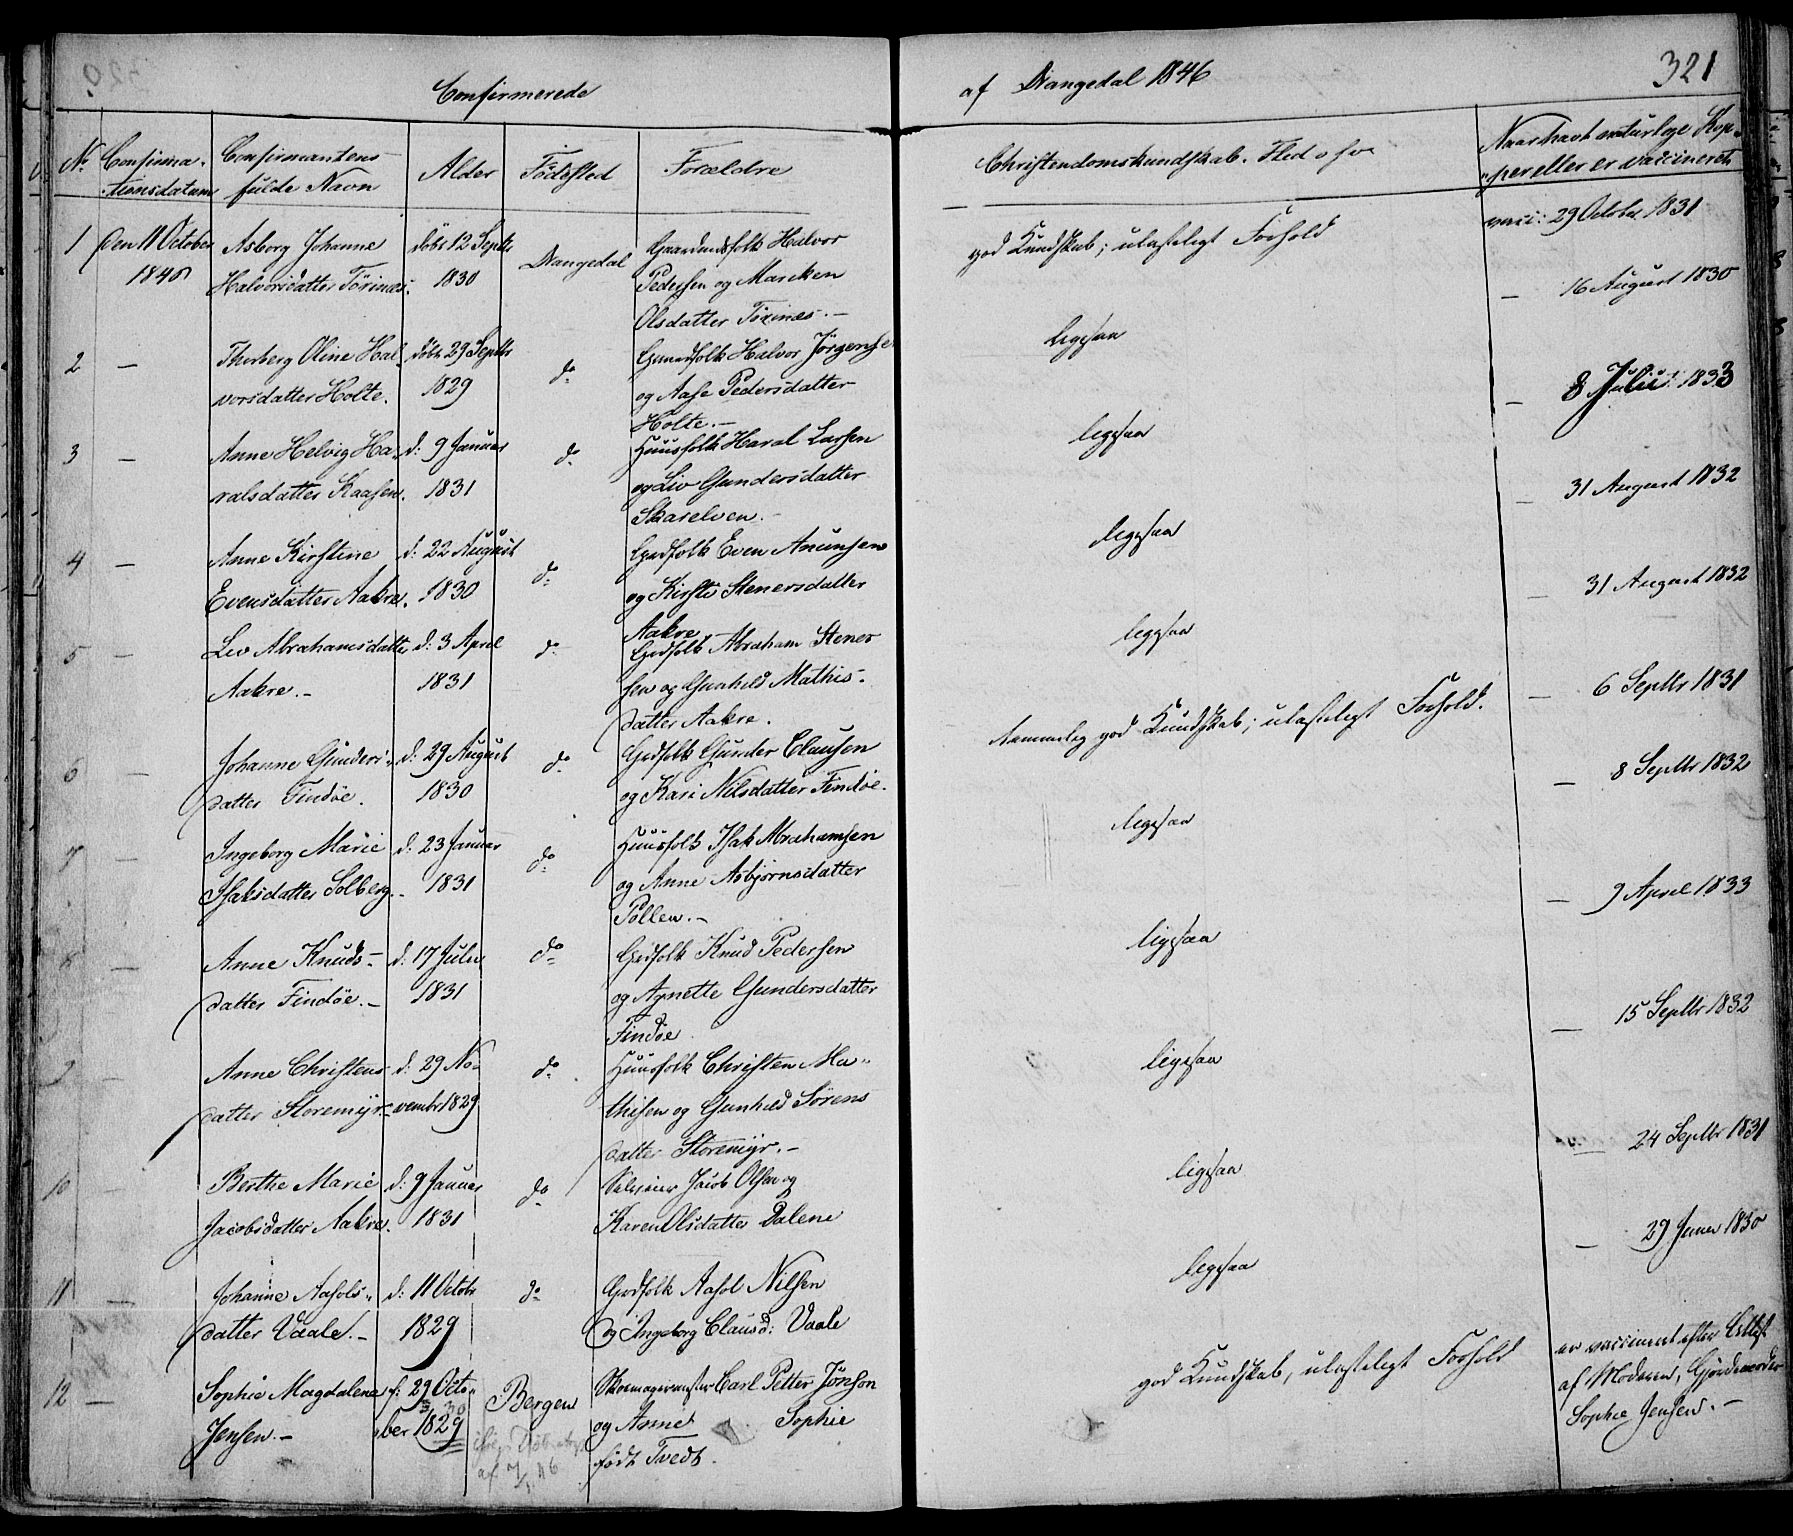 Confirmerede
af Drangedal 1846
321
No. Confirma-
tionsdatum
Confirmantens
fulde Navn
Alder
Födested
Forældre
Christendomskundskab. Flid o s v
Naar havt naturlige Kop-
per eller er vaccineret
1 den 11 October
1846
Asborg Johanne
Halvorsdatter Törinæs.
döbt 12 Septr
1830
Drangedal
Gaardmandsfolk Halvor
Pedersen og Mariken
Olsdatter Törinæs.-
god Kundskab; ulasteligt Forhold
vacc: 29 October 1831
2 —
Thorberg Oline Hal-
vorsdatter Holte.
döbt 29 Septbr
1829
do
Gmandfolk Halvor Jörgensen
og Aase Pedersdatter
Holte.-
ligesaa
— 16 August 1830
3 —
Anne Helvig Ha-
ralsdatter Kaasen.
d: 9 Januar
1831
do
Huusfolk Haral Larsen
og Liv Gundersdatter
Skarelven.-
ligesaa
— 8 Julii 1833
4 —
Anne Kirstine
Evensdatter Aakre.
d: 22 August
1830
do
Grdfolk Even Anunsen
og Kirsti Stenersdatter
Aakre
ligesaa
— 31 August 1832
5 —
Liv Abrahamsdatter
Aakre.-
d: 3 April
1831
do
Grdfolk Abraham Stener
sen og Gunhild Mathis-
datter Aakre.
ligesaa
— 31 August 1832
6 —
Johanne Gunders-
datter Findöe.
d: 29 August
1830
do
Grdfolk Gunder Clausen
og Kari Nilsdatter Findöe.
temmelig god Kundskab; ulasteligt Forhold.
— 6 Septbr 1831
7 —
Ingeborg Marie
Isaksdatter Solberg.-
d: 23 Januar
1831
do
Huusfolk Isak Abrahamsen
og Anne Asbjörnsdatter
Pollen.-
ligesaa
— 8 Septbr 1832
8 —
Anne Knuds-
datter Findöe.-
d: 17 Julii
1831
do
Grdfolk Knud Pedersen
og Agnette Gundersdatter
Findöe
ligesaa
— 9 April 1833
9 —
Anne Christens-
datter Storemyr.-
d: 29 No-
vembr 1829
do
Huusfolk Christen Ma-
thisen og Gunhild Sörens
datter Storemyr.-
ligesaa
— 15 Septbr 1832
10 —
Berthe Marie
Jacobsdatter Aakre.
d: 9 Januar
1831
do
Selveier Jacob Olsen og
Karen Olsdatter Dalene
ligesaa
— 24 Septbr 1831
11 —
Johanne Aasols-
datter Vaale.-
d: 11 Octobr
1829
do
Grdfolk Aasol Nilsen
og Ingeborg Clausd: Vaale
ligesaa
— 29 Juner 1830
12 —
Sophie Magdalena
Jensen.-
f: 29 Octo-
ber 1829
30
Bergen
Skomagermester Carl Petter Jönson
og Anne Sophie
födt Tvedt.
god Kundskab, ulasteligt Forhold
er vaccineret efter Attest
af Moderen, Gjordemoder
Sophie Jensen.-